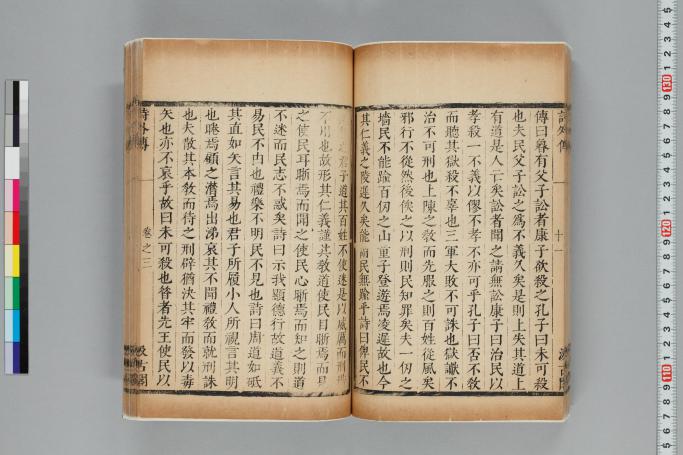 傳曰魯有父子訟者康子欲殺之孔子曰未可殺
也夫民父子訟之爲不義久矣是則上失其道上
有道是人亾矣訟者聞之請無訟康子曰治民以
孝殺一不義以僇不孝不亦可乎孔子曰否不敎
而聽其獄殺不辜也三軍大敗不可誅也獄讞不
治不可刑也上陳之敎而先服之則百姓從風矣
邪行不從然後俟之以刑則民知罪矣夫一仞之
墻民不能踰百仞之山童子登遊焉凌遲故也今
其仁義之陵遲久矣能謂民無踰乎詩曰俾民不
君子道其百姓不使迷是以威厲而刑
不用也故形其仁義謹其敎道使民目晣焉而見
之使民耳晣焉而聞之使民心晣焉而知之則道
不迷而民志不惑矣詩曰示我顯德行故道義不
易民不由也禮樂不明民不見也詩曰周道如砥
其直如矢言其易也君子所履小人所視言其明
也睠焉顧之潸焉出涕哀其不聞禮敎而就刑誅
也夫散其本敎而待之刑辟猶決其牢而發以毒
矢也亦不哀乎故曰未可殺也昝者先王使民以
詩外傳
卷之三
汲古閣